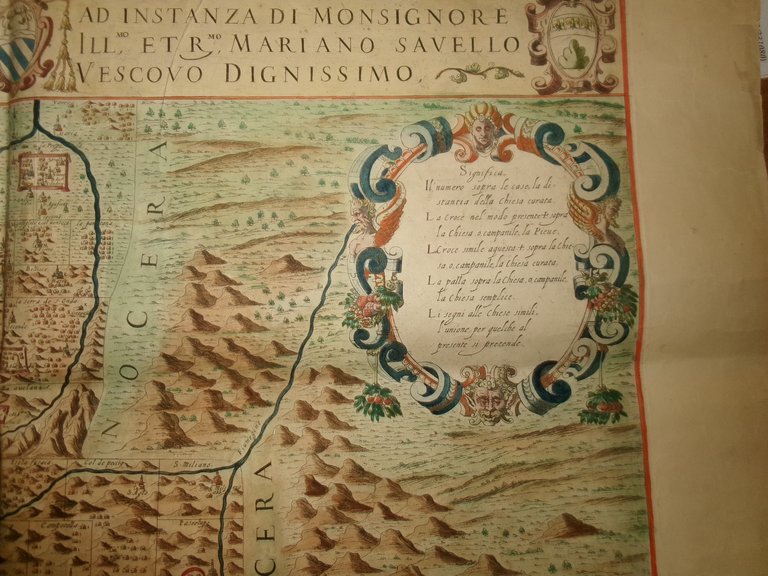 AD INSTANZA DI MONSIGNORE
ILL.MO ET R.MO MARIANO SAVELLO
VESCOVO DIGNISSIMO.
Significa.
Il numero sopra le case, la di-
stantia della Chiesa curata.
La Croce nel modo presente + sopra
la Chiesa, o, campanile, la Pieue.
La Croce simile a questa + sopra la Chie-
sa, o, campanile, la Chiesa curata.
La palla sopra la Chiesa, o, campanile,
la Chiesa semplice.
Li segni alle Chiese simili,
l'unione, per quelche al
presente si pretende.
NOCERA
Col de
S. Miliano
CERA